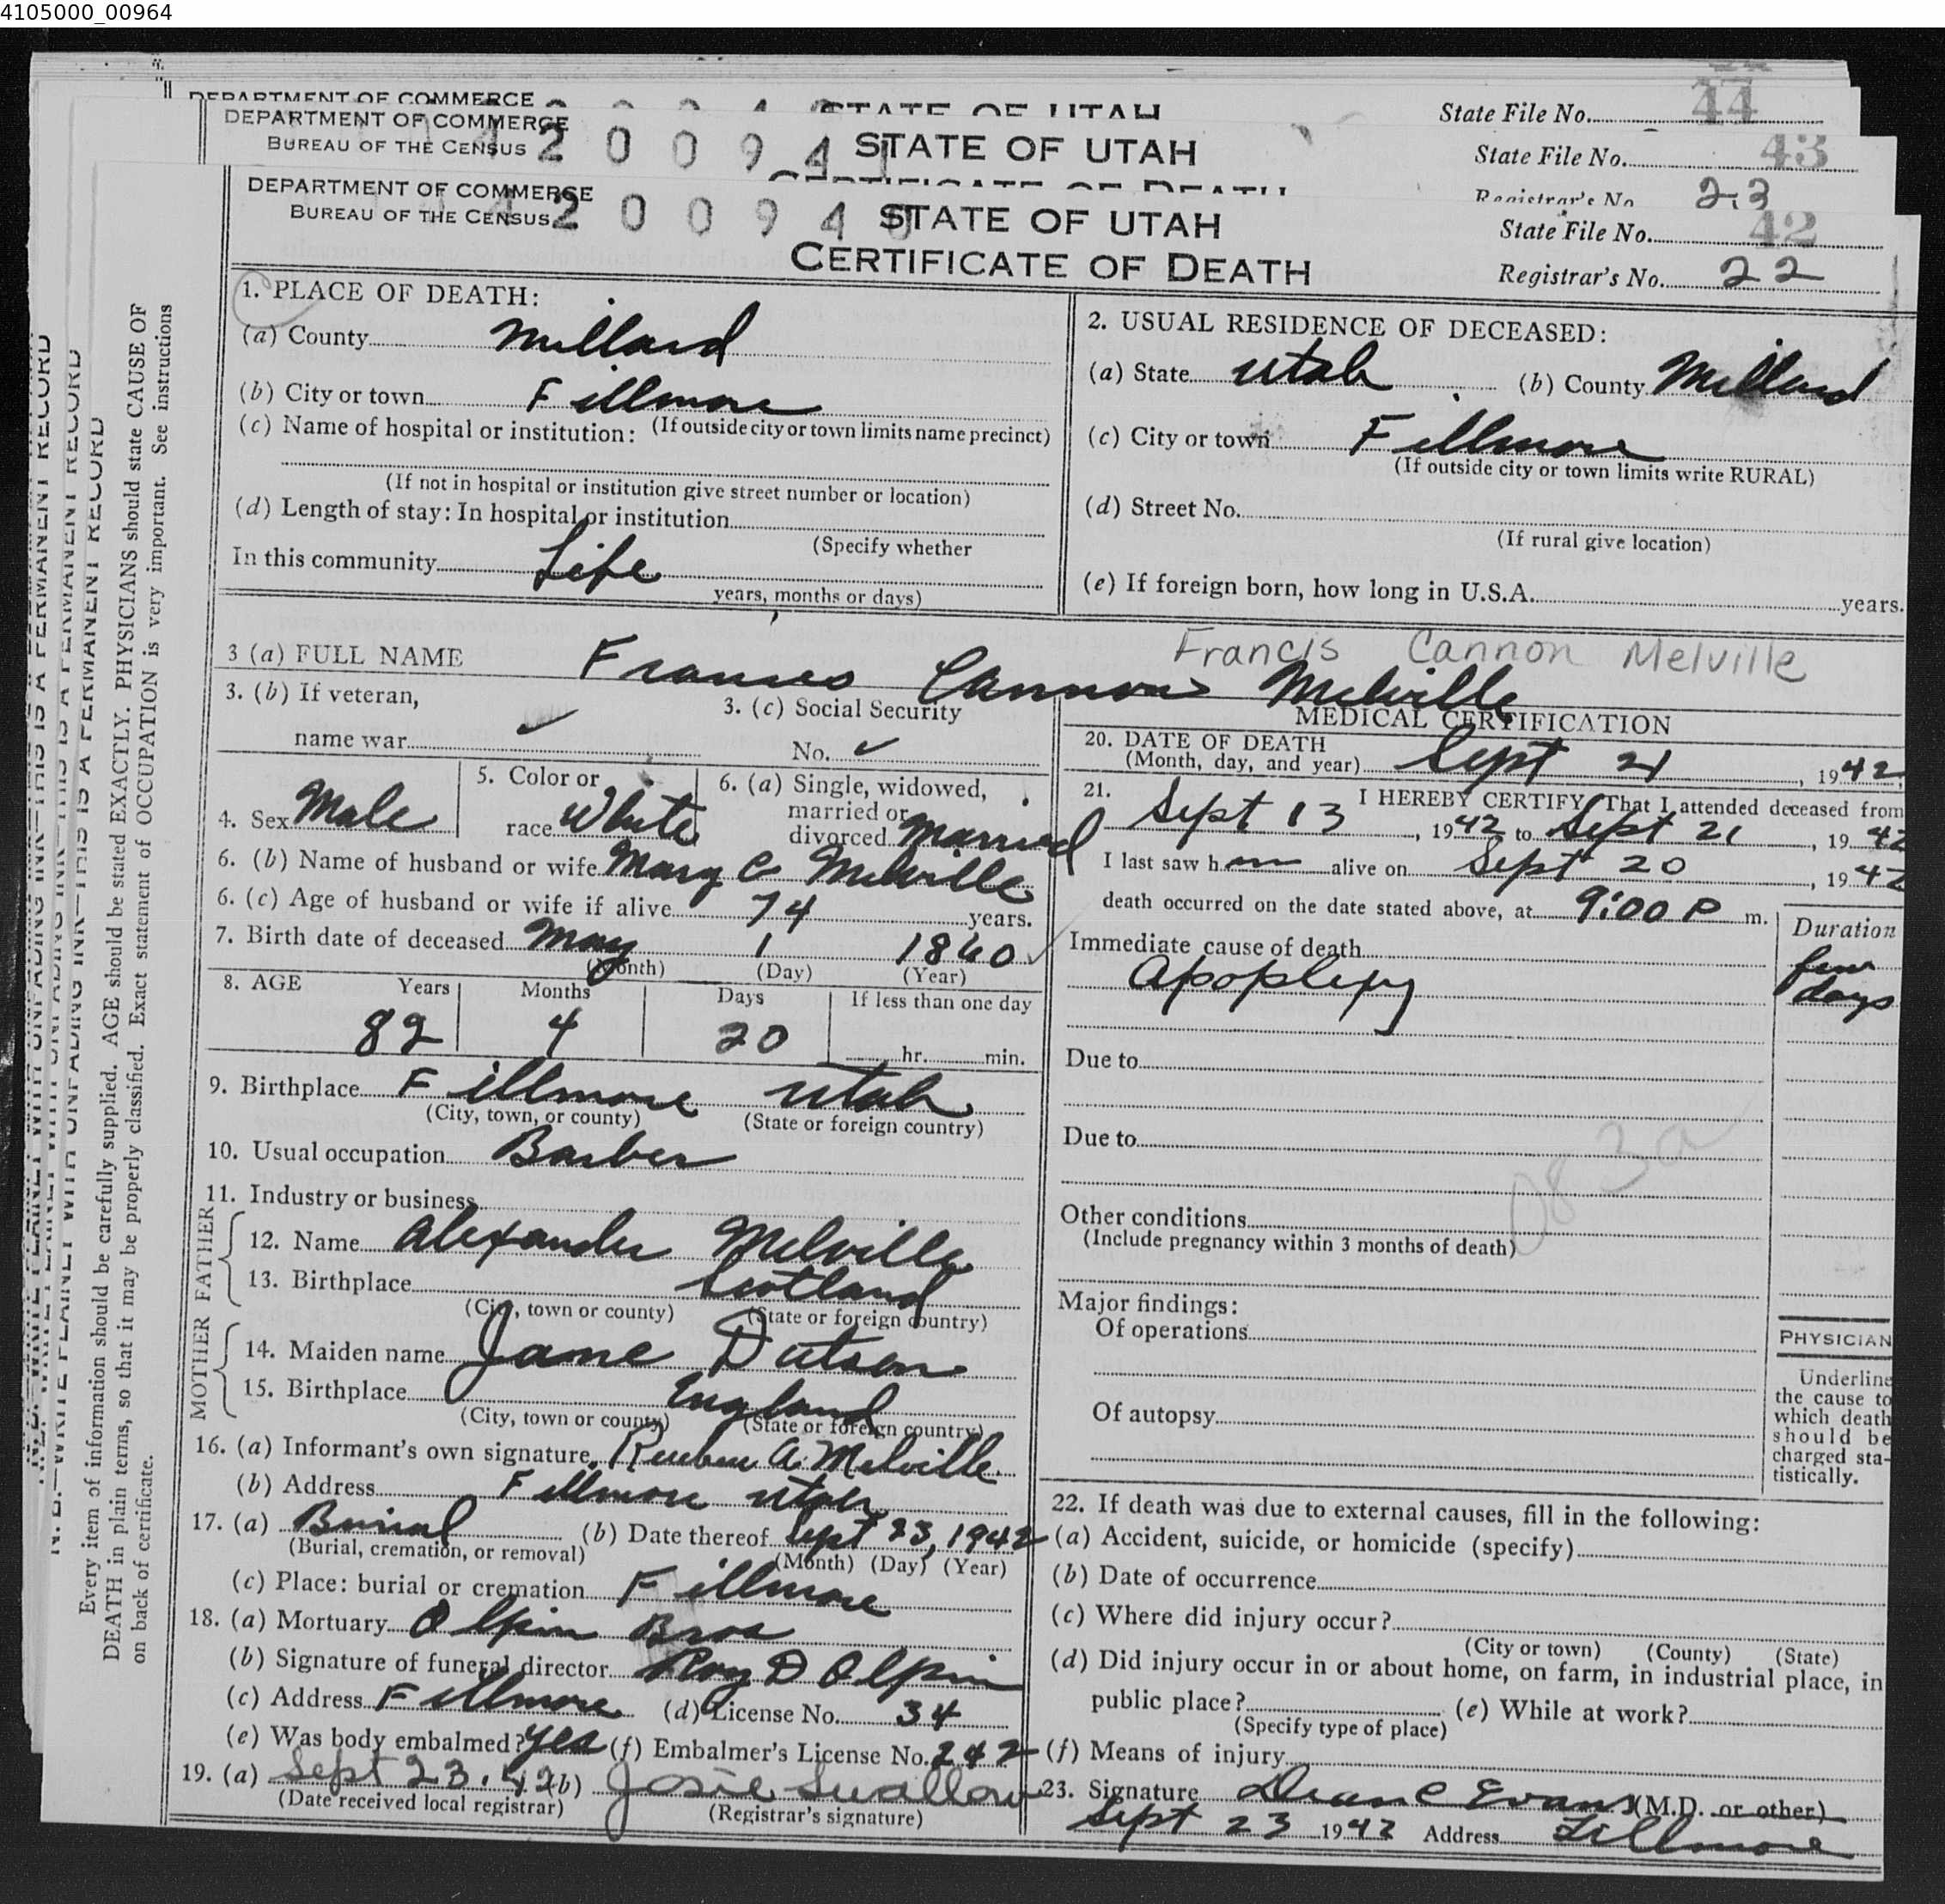 4105000_00964
DEPARTMENT OF COMMERCE
STATE OF UTAH
State File No. 44
DEPARTMENT OF COMMERCE
BUREAU OF THE CENSUS
2 0 0 9 4
STATE OF UTAH
State File No. 43
CERTIFICATE OF DEATH
Registrar's No. 23
DEPARTMENT OF COMMERCE
BUREAU OF THE CENSUS
4 2 0 0 9 4 0
STATE OF UTAH
CERTIFICATE OF DEATH
State File No. 42
Registrar's No. 22
N. B.—WRITE PLAINLY WITH UNFADING INK—THIS IS A PERMANENT RECORD
Every item of information should be carefully supplied. AGE should be stated EXACTLY. PHYSICIANS should state CAUSE OF
DEATH in plain terms, so that it may be properly classified. Exact statement of OCCUPATION is very important. See instructions
on back of certificate.
1. PLACE OF DEATH:
(a) County Millard
(b) City or town Fillmore
(c) Name of hospital or institution: (If outside city or town limits name precinct)
(If not in hospital or institution give street number or location)
(d) Length of stay: In hospital or institution
(Specify whether
In this community Life
years, months or days)
2. USUAL RESIDENCE OF DECEASED:
(a) State Utah (b) County Millard
(c) City or town Fillmore
(If outside city or town limits write RURAL)
(d) Street No.
(If rural give location)
(e) If foreign born, how long in U.S.A. years.
Francis Cannon Melville
3 (a) FULL NAME Frances Cannon Melville
3. (b) If veteran,
name war
3. (c) Social Security
No.
4. Sex Male
5. Color or
race White
6. (a) Single, widowed,
married or
divorced Married
6. (b) Name of husband or wife Mary C Melville
6. (c) Age of husband or wife if alive 74 years.
7. Birth date of deceased May 1 1860
(Month) (Day) (Year)
8. AGE Years Months Days If less than one day
82 4 20 hr. min.
9. Birthplace Fillmore Utah
(City, town, or county) (State or foreign country)
10. Usual occupation Barber
11. Industry or business
FATHER
12. Name Alexander Melville
13. Birthplace Scotland
(City, town or county) (State or foreign country)
MOTHER
14. Maiden name Jane Dutson
15. Birthplace England
(City, town or county) (State or foreign country)
16. (a) Informant's own signature Reuben A. Melville
(b) Address Fillmore Utah
17. (a) Burial (b) Date thereof Sept 23, 1942
(Burial, cremation, or removal) (Month) (Day) (Year)
(c) Place: burial or cremation Fillmore
18. (a) Mortuary Olpin Bros
(b) Signature of funeral director Roy D Olpin
(c) Address Fillmore (d) License No. 34
(e) Was body embalmed? yes (f) Embalmer's License No. 242
19. (a) Sept 23. 42 (b) Josie Swallow
(Date received local registrar) (Registrar's signature)
MEDICAL CERTIFICATION
20. DATE OF DEATH
(Month, day, and year) Sept 21, 1942
21. I HEREBY CERTIFY, That I attended deceased from
Sept 13, 1942 to Sept 21, 1942
I last saw him alive on Sept 20, 1942
death occurred on the date stated above, at 9:00 P m.
Duration
Immediate cause of death
Apoplexy few days
Due to
Due to
083a
Other conditions
(Include pregnancy within 3 months of death)
Major findings:
Of operations
Of autopsy
PHYSICIAN
Underline
the cause to
which death
should be
charged sta-
tistically.
22. If death was due to external causes, fill in the following:
(a) Accident, suicide, or homicide (specify)
(b) Date of occurrence
(c) Where did injury occur?
(City or town) (County) (State)
(d) Did injury occur in or about home, on farm, in industrial place, in
public place? (e) While at work?
(Specify type of place)
(f) Means of injury
23. Signature Dean C Evans (M.D. or other)
Sept 23 1942 Address Fillmore